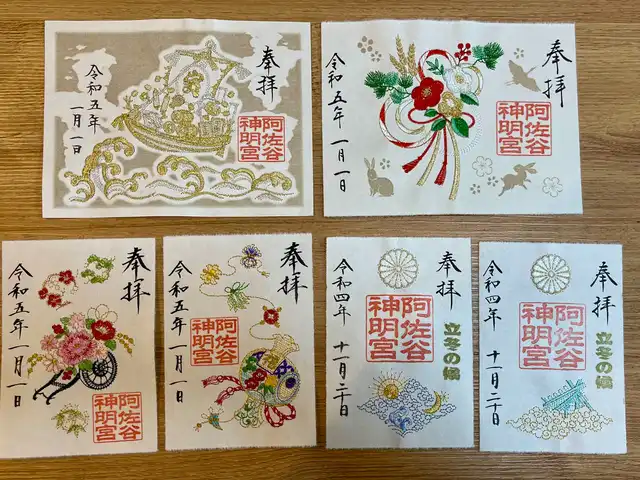 奉拝
阿佐谷
神明宮
令和五年
一月一日
奉拝
阿佐谷
神明宮
令和五年
一月一日
奉拝
阿佐谷
神明宮
令和五年
一月一日
奉拝
阿佐谷
神明宮
令和五年
一月一日
奉拝
立冬の候
阿佐谷
神明宮
令和四年
十一月二十日
奉拝
立冬の候
阿佐谷
神明宮
令和四年
十一月二十日